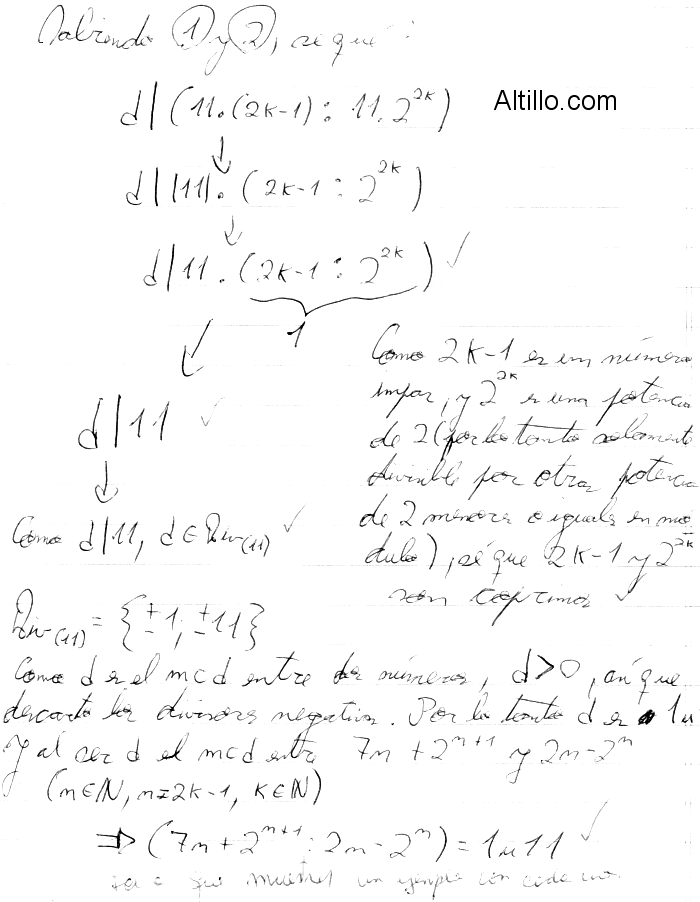 Sabiendo ① y ②, sé que:
d | (11.(2k-1) : 11.2^{2k}) Altillo.com
↓
d | |11|. (2k-1 : 2^{2k})
↓
d | 11 . (2k-1 : 2^{2k}) ✓
1
↓
d | 11 ✓
↓
Como d | 11, d ∈ Div(11) ✓
Como 2k-1 es un número
impar, y 2^{2k} es una potencia
de 2 (por lo tanto solamente
divisible por otras potencias
de 2 menores o iguales en mó
dulo), sé que 2k-1 y 2^{2k}
son coprimos ✓
Div(11) = {±1; ±11}
Como d es el mcd entre dos números, d>0, así que
descarto los divisores negativos. Por lo tanto d es 1 u
Y al ser d el mcd entre 7n + 2^{n+1} y 2n - 2^n
(n∈ℕ, n=2k-1, k∈ℕ)
⇒ (7n + 2^{n+1} : 2n - 2^n) = 1 u 11 ✓
que muestres un ejemplo con cada uno